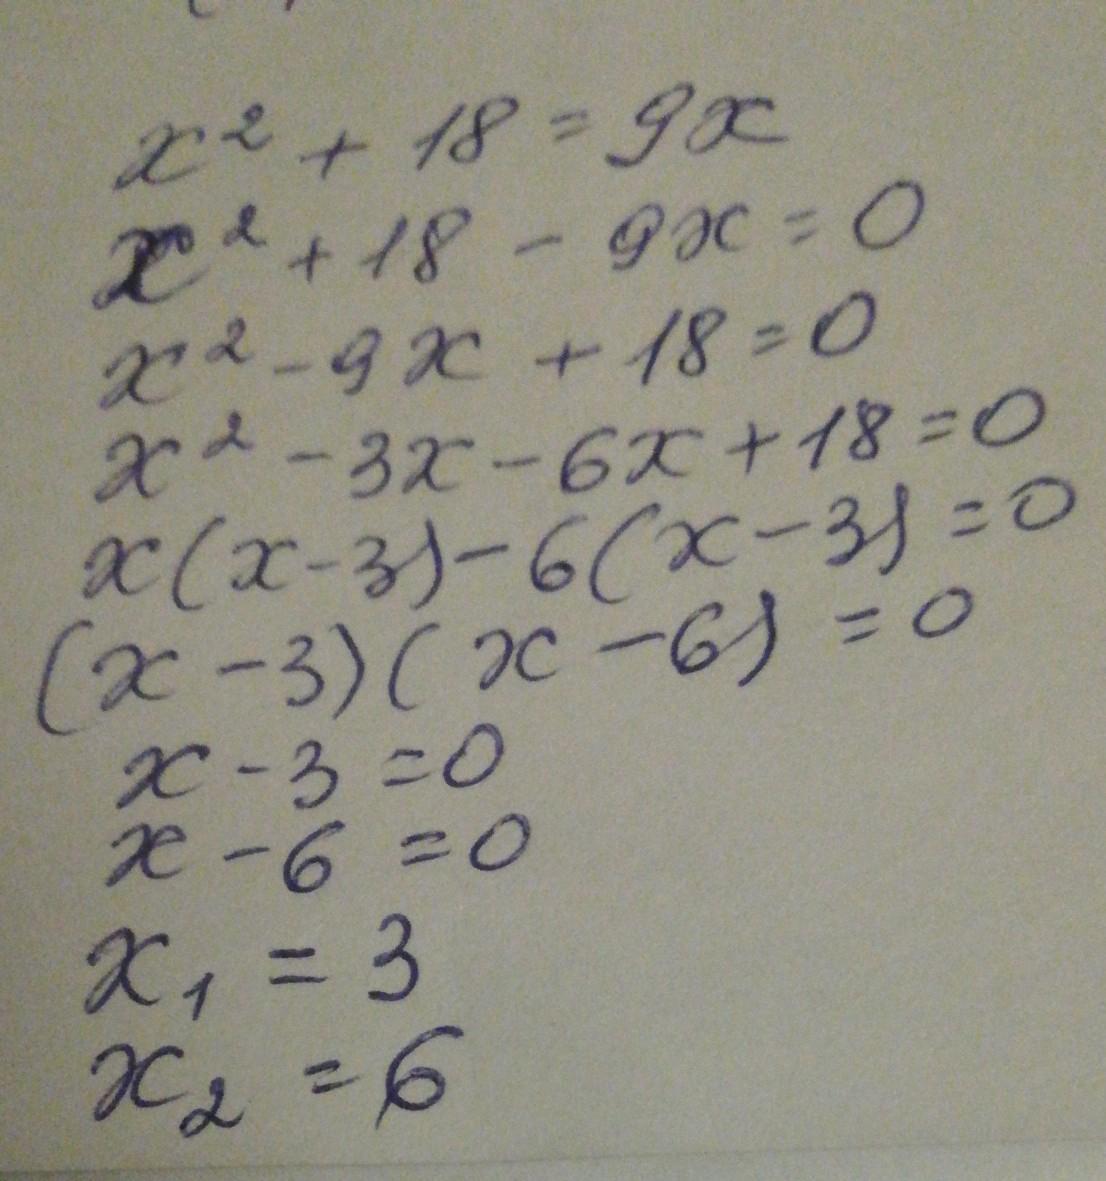 x² + 18 = 9x
x² + 18 - 9x = 0
x² - 9x + 18 = 0
x² - 3x - 6x + 18 = 0
x(x-3) - 6(x-3) = 0
(x-3)(x-6) = 0
x - 3 = 0
x - 6 = 0
x₁ = 3
x₂ = 6